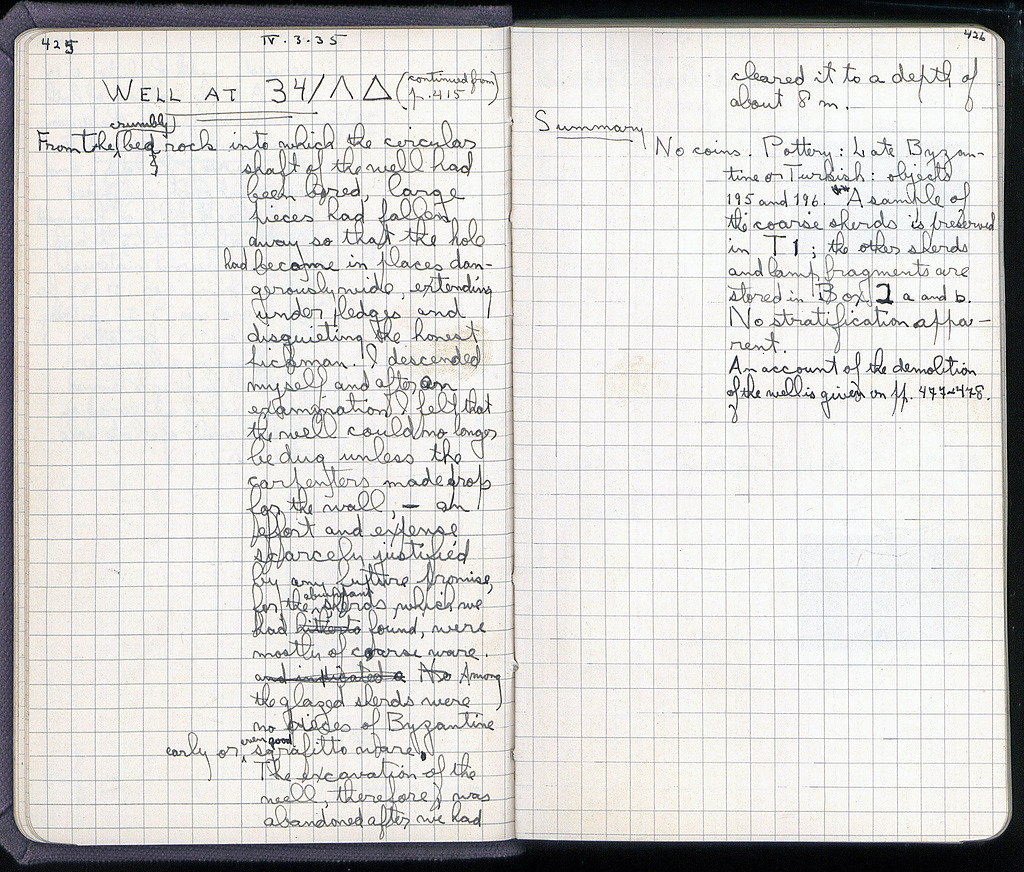 425
IV.3.35
WELL AT 34/ΛΔ (continued from
p. 415)
crumbly
From the bed rock into which the circular
shaft of the well had
been bored, large
pieces had fallen
away so that the hole
had become in places dan-
gerously wide, extending
under ledges and
disquieting the honest
pickman. I descended
myself and after an
examination I felt that
the well could no longer
be dug unless the
carpenters made props
for the wall, – an
effort and expense
scarcely justified
by any future promise,
abundant
for the sherds, which we
had hitherto found, were
mostly of coarse ware.
and indicated a No Among
the glazed sherds were
no pieces of Byzantine
even good
early or sgrafitto ware.
The excavation of the
well, therefore, was
abandoned after we had
426
cleared it to a depth of
about 8 m.
Summary
No coins. Pottery: Late Byzan-
tine or Turkish: objects
195 and 196. A sample of
the coarse sherds is preserved
in T1; the other sherds
and lamp fragments are
stored in Box 2 a and b.
No stratification appa-
rent.
An account of the demolition
of the well is given on pp. 477-478.